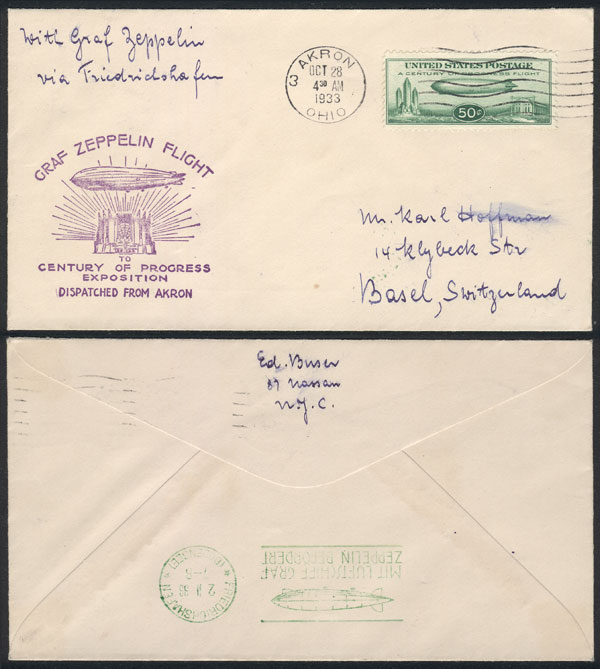 With Graf Zeppelin
via Friedrichshafen
3 AKRON
OCT 28
4 30 AM
1933
OHIO
UNITED STATES POSTAGE
A CENTURY OF PROGRESS FLIGHT
50¢
GRAF ZEPPELIN FLIGHT
TO
CENTURY OF PROGRESS
EXPOSITION
DISPATCHED FROM AKRON
Mr. Karl Hoffman
14 Klybeck Str
Basel, Switzerland
Ed. Buser
87 Nassau
N.Y.C.
MIT LUFTSCHIFF GRAF
ZEPPELIN BEFÖRDERT
FRIEDRICHSHAFEN
(BODENSEE)
7-8